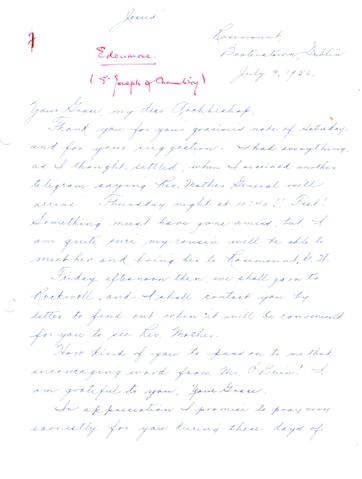 Jesus!
Rosemount
Booterstown, Dublin
July 9, 1952.
Edenmore
(St Joseph of Chambéry)
Your Grace, my dear Archbishop,
Thank you for your gracious note of Saturday
and for your suggestion. I had everything,
as I thought, settled, when I received another
telegram saying Rev. Mother General will
arrive Thursday night at 11:40!!
Something must have gone amiss, but, I
am quite sure my cousin will be able to
meet her and bring her to Rosemount,
Friday afternoon then we shall go on to
Rockwell, and I shall contact you by
letter to find out when it will be convenient
for you to see Rev. Mother.
How kind of you to pass on to me that
encouraging word from Mr. O'Brien! I
am grateful to you, Your Grace.
In appreciation I promise to pray very
earnestly for you during these days of